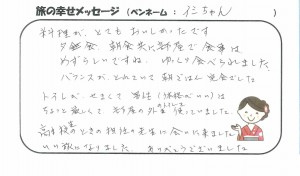 旅の幸せメッセージ (ペンネーム: イシちゃん)
料理が、とてもおいしかったです
夕食会、朝食共に部屋で食事は
めずらしいですね。ゆっくり食べられました。
バランスが、とれていて朝ごはん完食でした
トイレが、せまくて 男性(体格がいい)は
ちょっと厳しくて、お部屋の外を使っていました。
高校の時の担任の先生に会いに来ました。
いい旅になりました。ありがとうございました